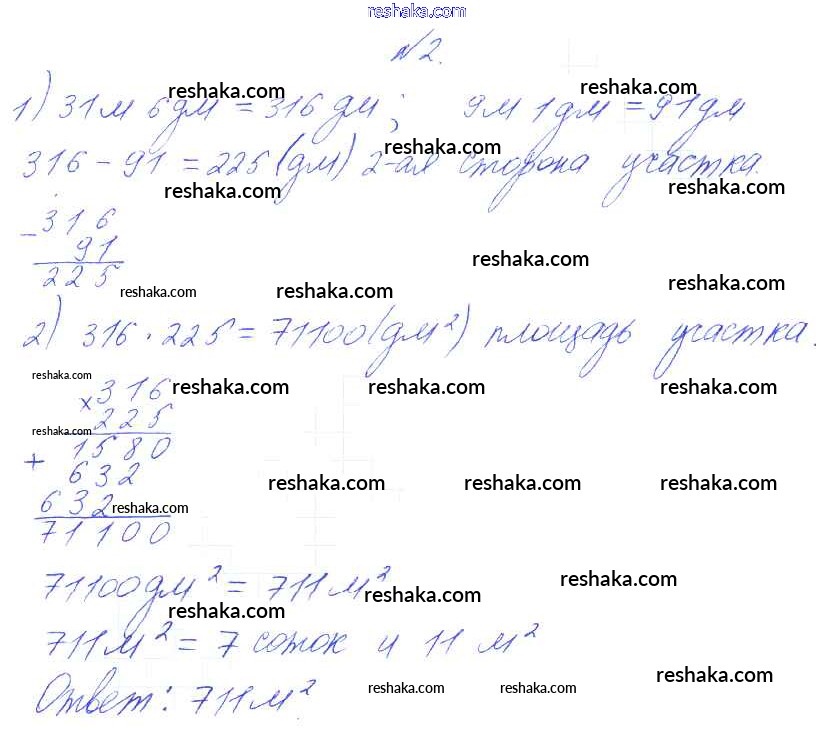 reshaka.com
№2.
1) 31м 6дм = 316 дм; 9м 1дм = 91дм
reshaka.com reshaka.com
316 - 91 = 225 (дм) 2-ая сторона участка.
reshaka.com reshaka.com reshaka.com
- 316
91
225
reshaka.com reshaka.com reshaka.com reshaka.com
2) 316 · 225 = 71100 (дм²) площадь участка.
reshaka.com reshaka.com reshaka.com reshaka.com
× 316
225
reshaka.com
+ 1580
632
reshaka.com reshaka.com reshaka.com
632
reshaka.com
71100
71100дм² = 711м²
reshaka.com reshaka.com reshaka.com
711м² = 7 соток и 11 м²
reshaka.com
Ответ: 711м².
reshaka.com reshaka.com